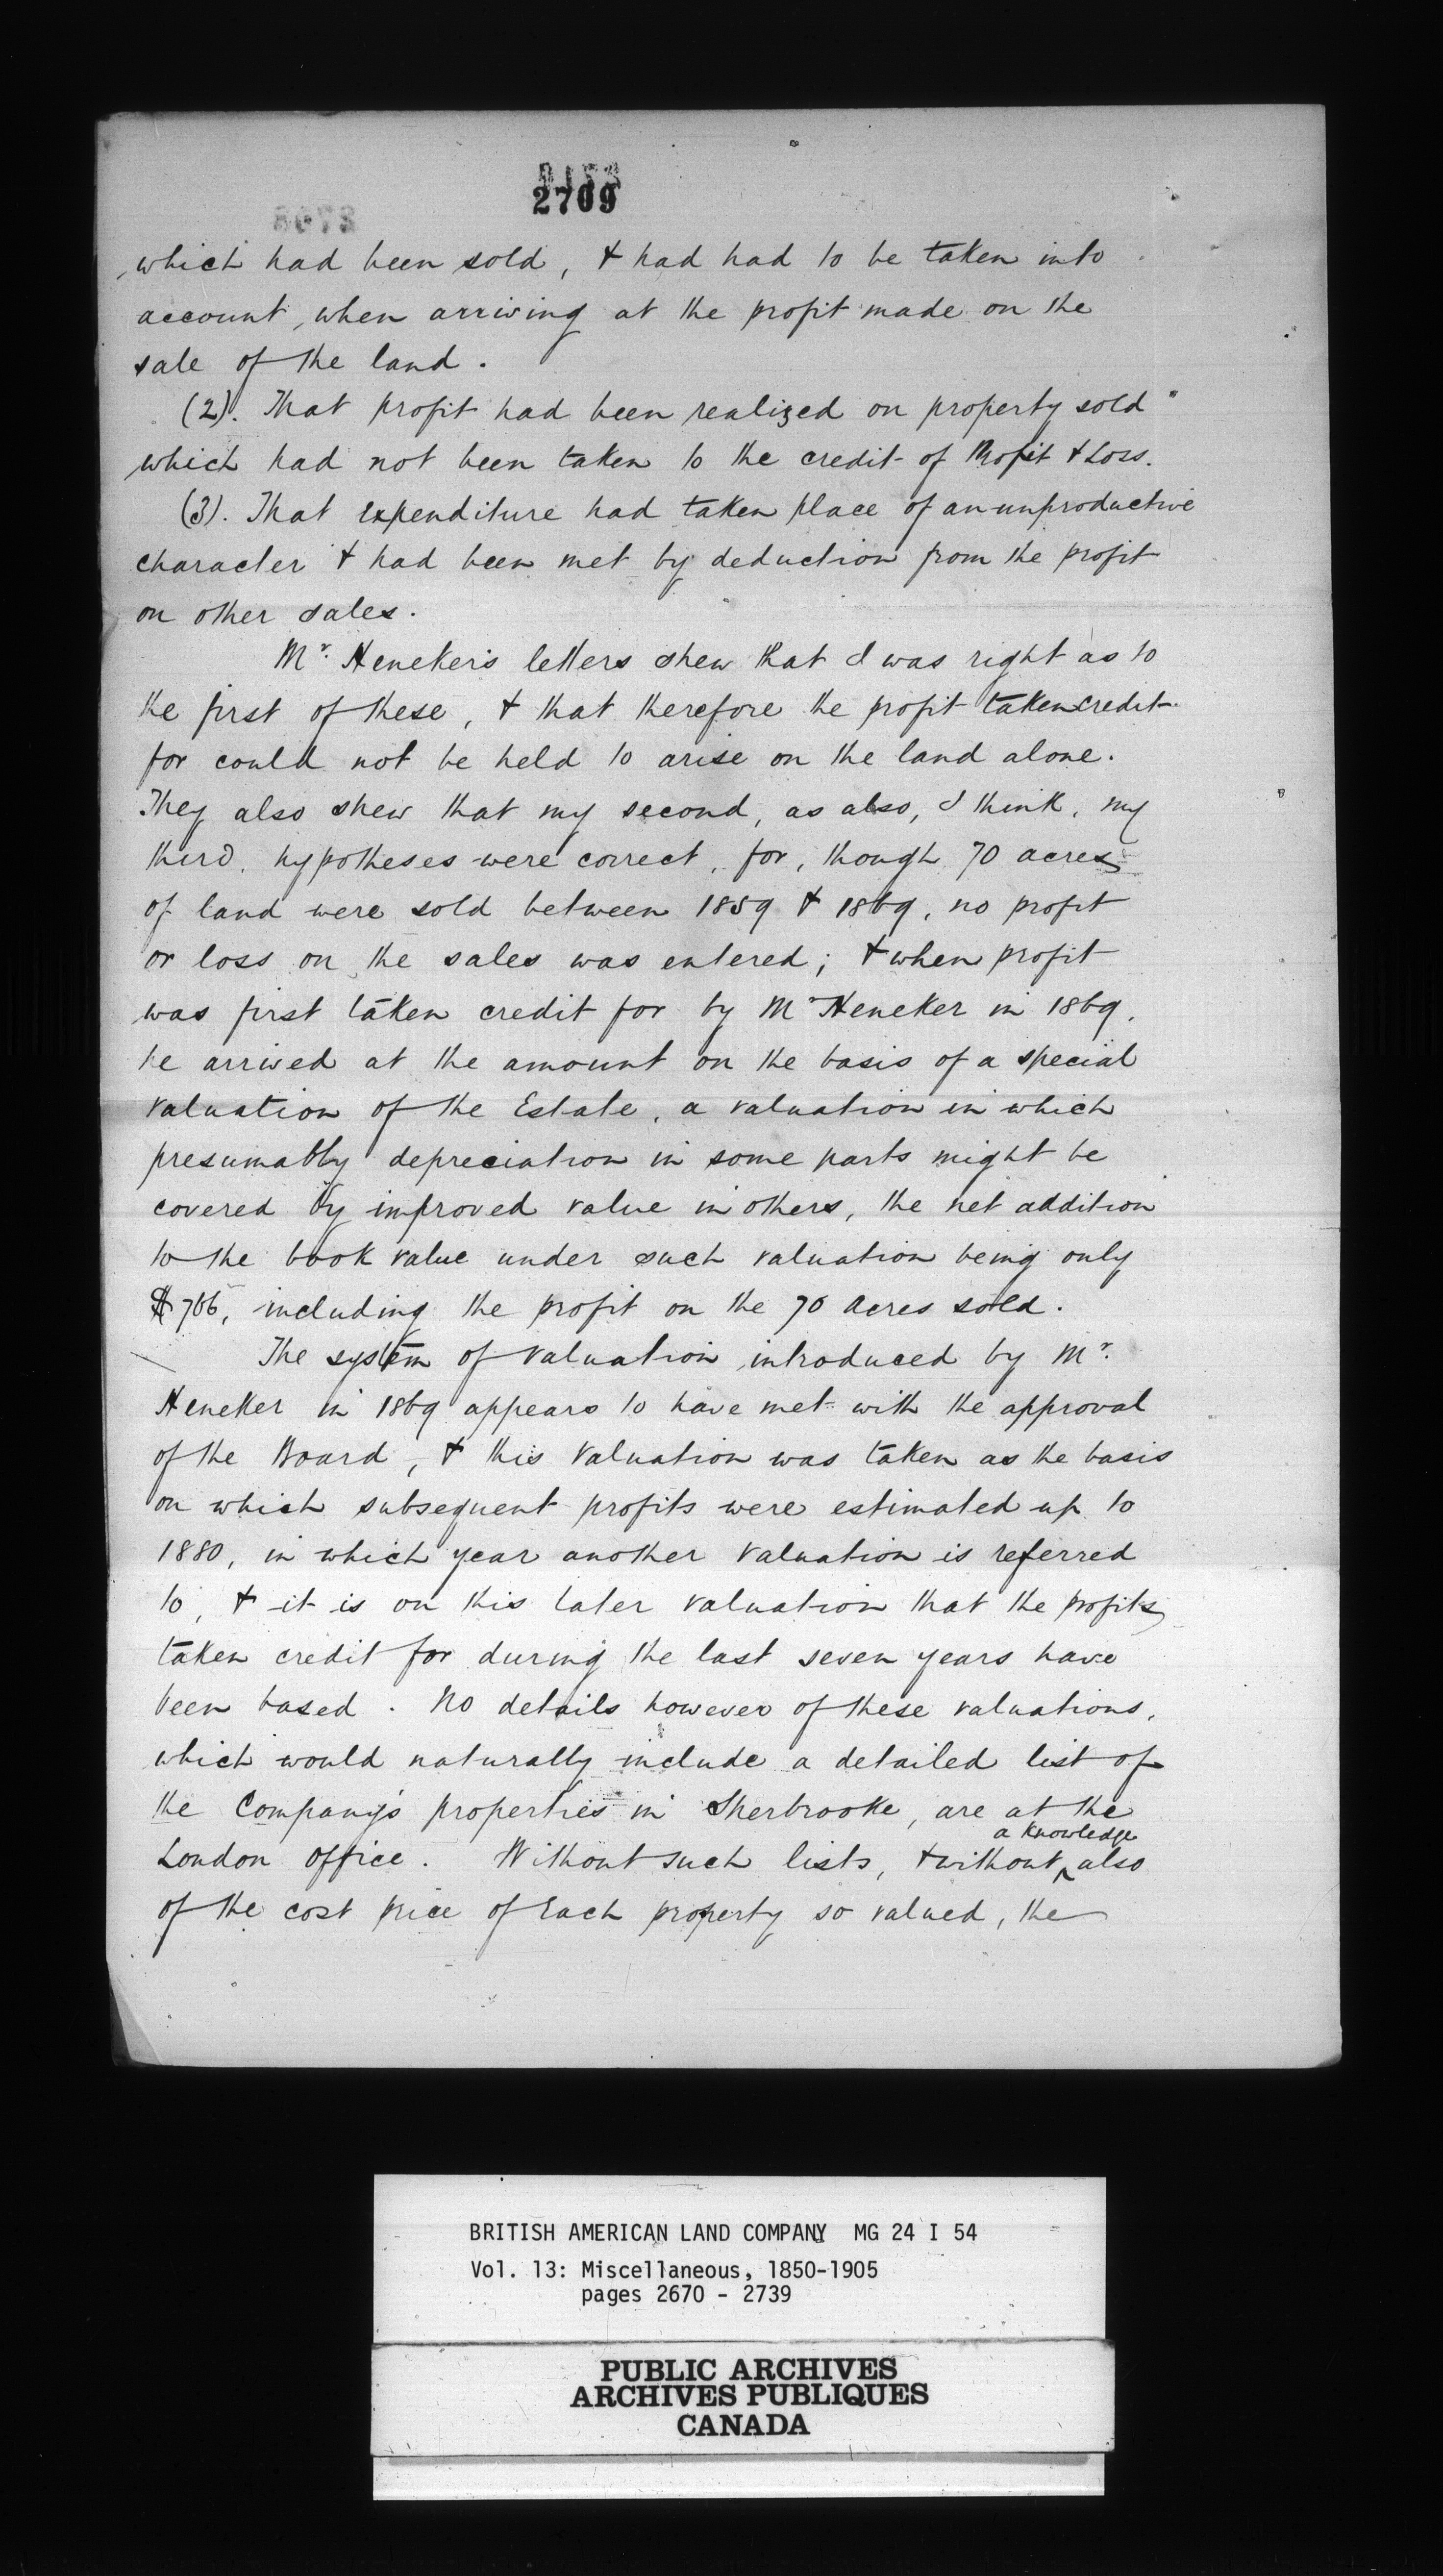 2709
which had been sold, & had had to be taken into
account, when arriving at the profit made on the
sale of the land.
(2). That profit had been realized on property sold
which had not been taken to the credit of Profit & Loss.
(3). That expenditure had taken place of an unproductive
character & had been met by deduction from the profit
on other sales.
Mr. Heneker's letters shew that I was right as to
the first of these, & that therefore the profit taken credit
for could not be held to arise on the land alone.
They also shew that my second, as also, I think, my
third, hypotheses were correct, for, though 70 acres
of land were sold between 1859 & 1869, no profit
or loss on the sales was entered; & when profit
was first taken credit for by Mr Heneker in 1869,
he arrived at the amount on the basis of a special
valuation of the Estate, a valuation in which
presumably depreciation in some parts might be
covered by improved value in others, the net addition
to the book value under such valuation being only
$766, including the profit on the 70 acres sold.
The system of valuation introduced by Mr.
Heneker in 1869 appears to have met with the approval
of the Board, & this valuation was taken as the basis
on which subsequent profits were estimated up to
1880, in which year another valuation is referred
to, & it is on this later valuation that the profits
taken credit for during the last seven years have
been based. No details however of these valuations,
which would naturally include a detailed list of
the Company's properties in Sherbrooke, are at the
London Office. Without such lists, & without a knowledge also
of the cost price of each property so valued, the
BRITISH AMERICAN LAND COMPANY MG 24 I 54
Vol. 13: Miscellaneous, 1850-1905
pages 2670 - 2739
PUBLIC ARCHIVES
ARCHIVES PUBLIQUES
CANADA